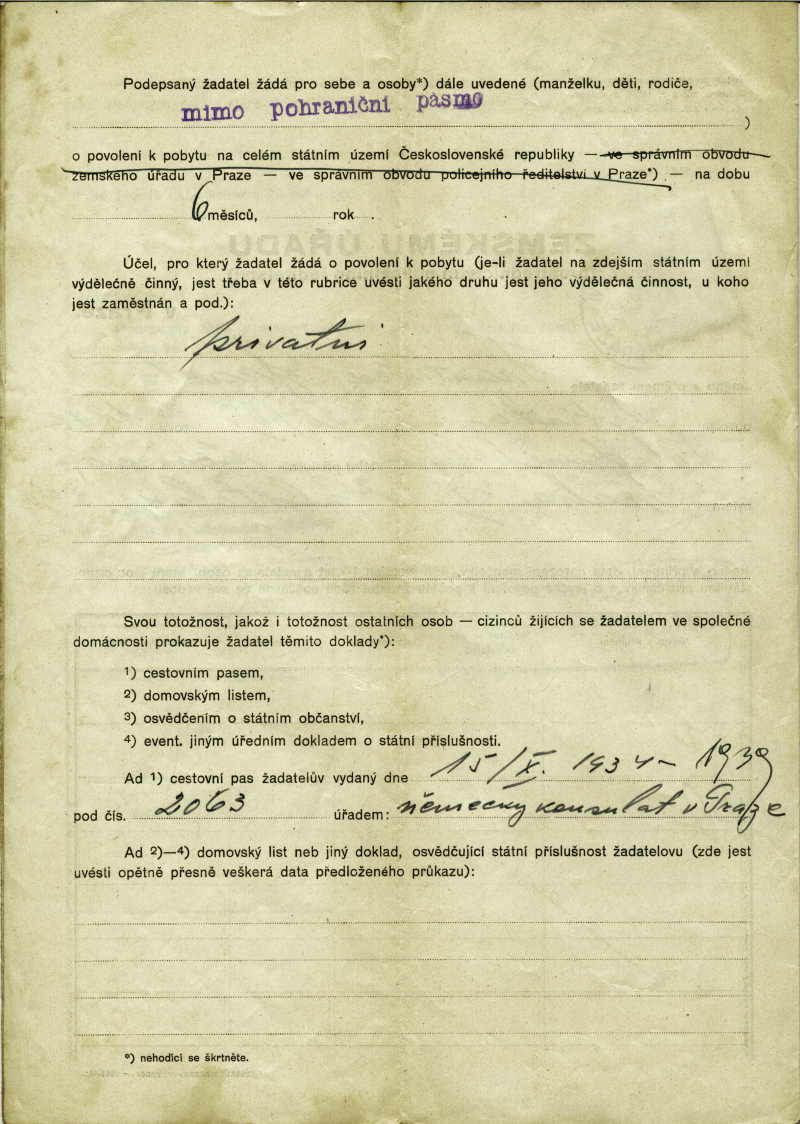 Podepsaný žadatel žádá pro sebe a osoby*) dále uvedené (manželku, děti, rodiče,
mimo pohraniční pásmo
)
o povolení k pobytu na celém státním území Československé republiky — ve správním obvodu
zemského úřadu v Praze — ve správním obvodu policejního ředitelství v Praze*) — na dobu
6 měsíců, rok .
Účel, pro který žadatel žádá o povolení k pobytu (je-li žadatel na zdejším státním území
výdělečně činný, jest třeba v této rubrice uvésti jakého druhu jest jeho výdělečná činnost, u koho
jest zaměstnán a pod.):
privatni
Svou totožnost, jakož i totožnost ostatních osob — cizinců žijících se žadatelem ve společné
domácnosti prokazuje žadatel těmito doklady*):
1) cestovním pasem,
2) domovským listem,
3) osvědčením o státním občanství,
4) event. jiným úředním dokladem o státní příslušnosti.
Ad 1) cestovní pas žadatelův vydaný dne 15/X. 1934 - 1939
pod čís. 2063 úřadem: německý konsulat v Praze
Ad 2)—4) domovský list neb jiný doklad, osvědčující státní příslušnost žadatelovu (zde jest
uvésti opětně přesně veškerá data předloženého průkazu):
*) nehodící se škrtněte.